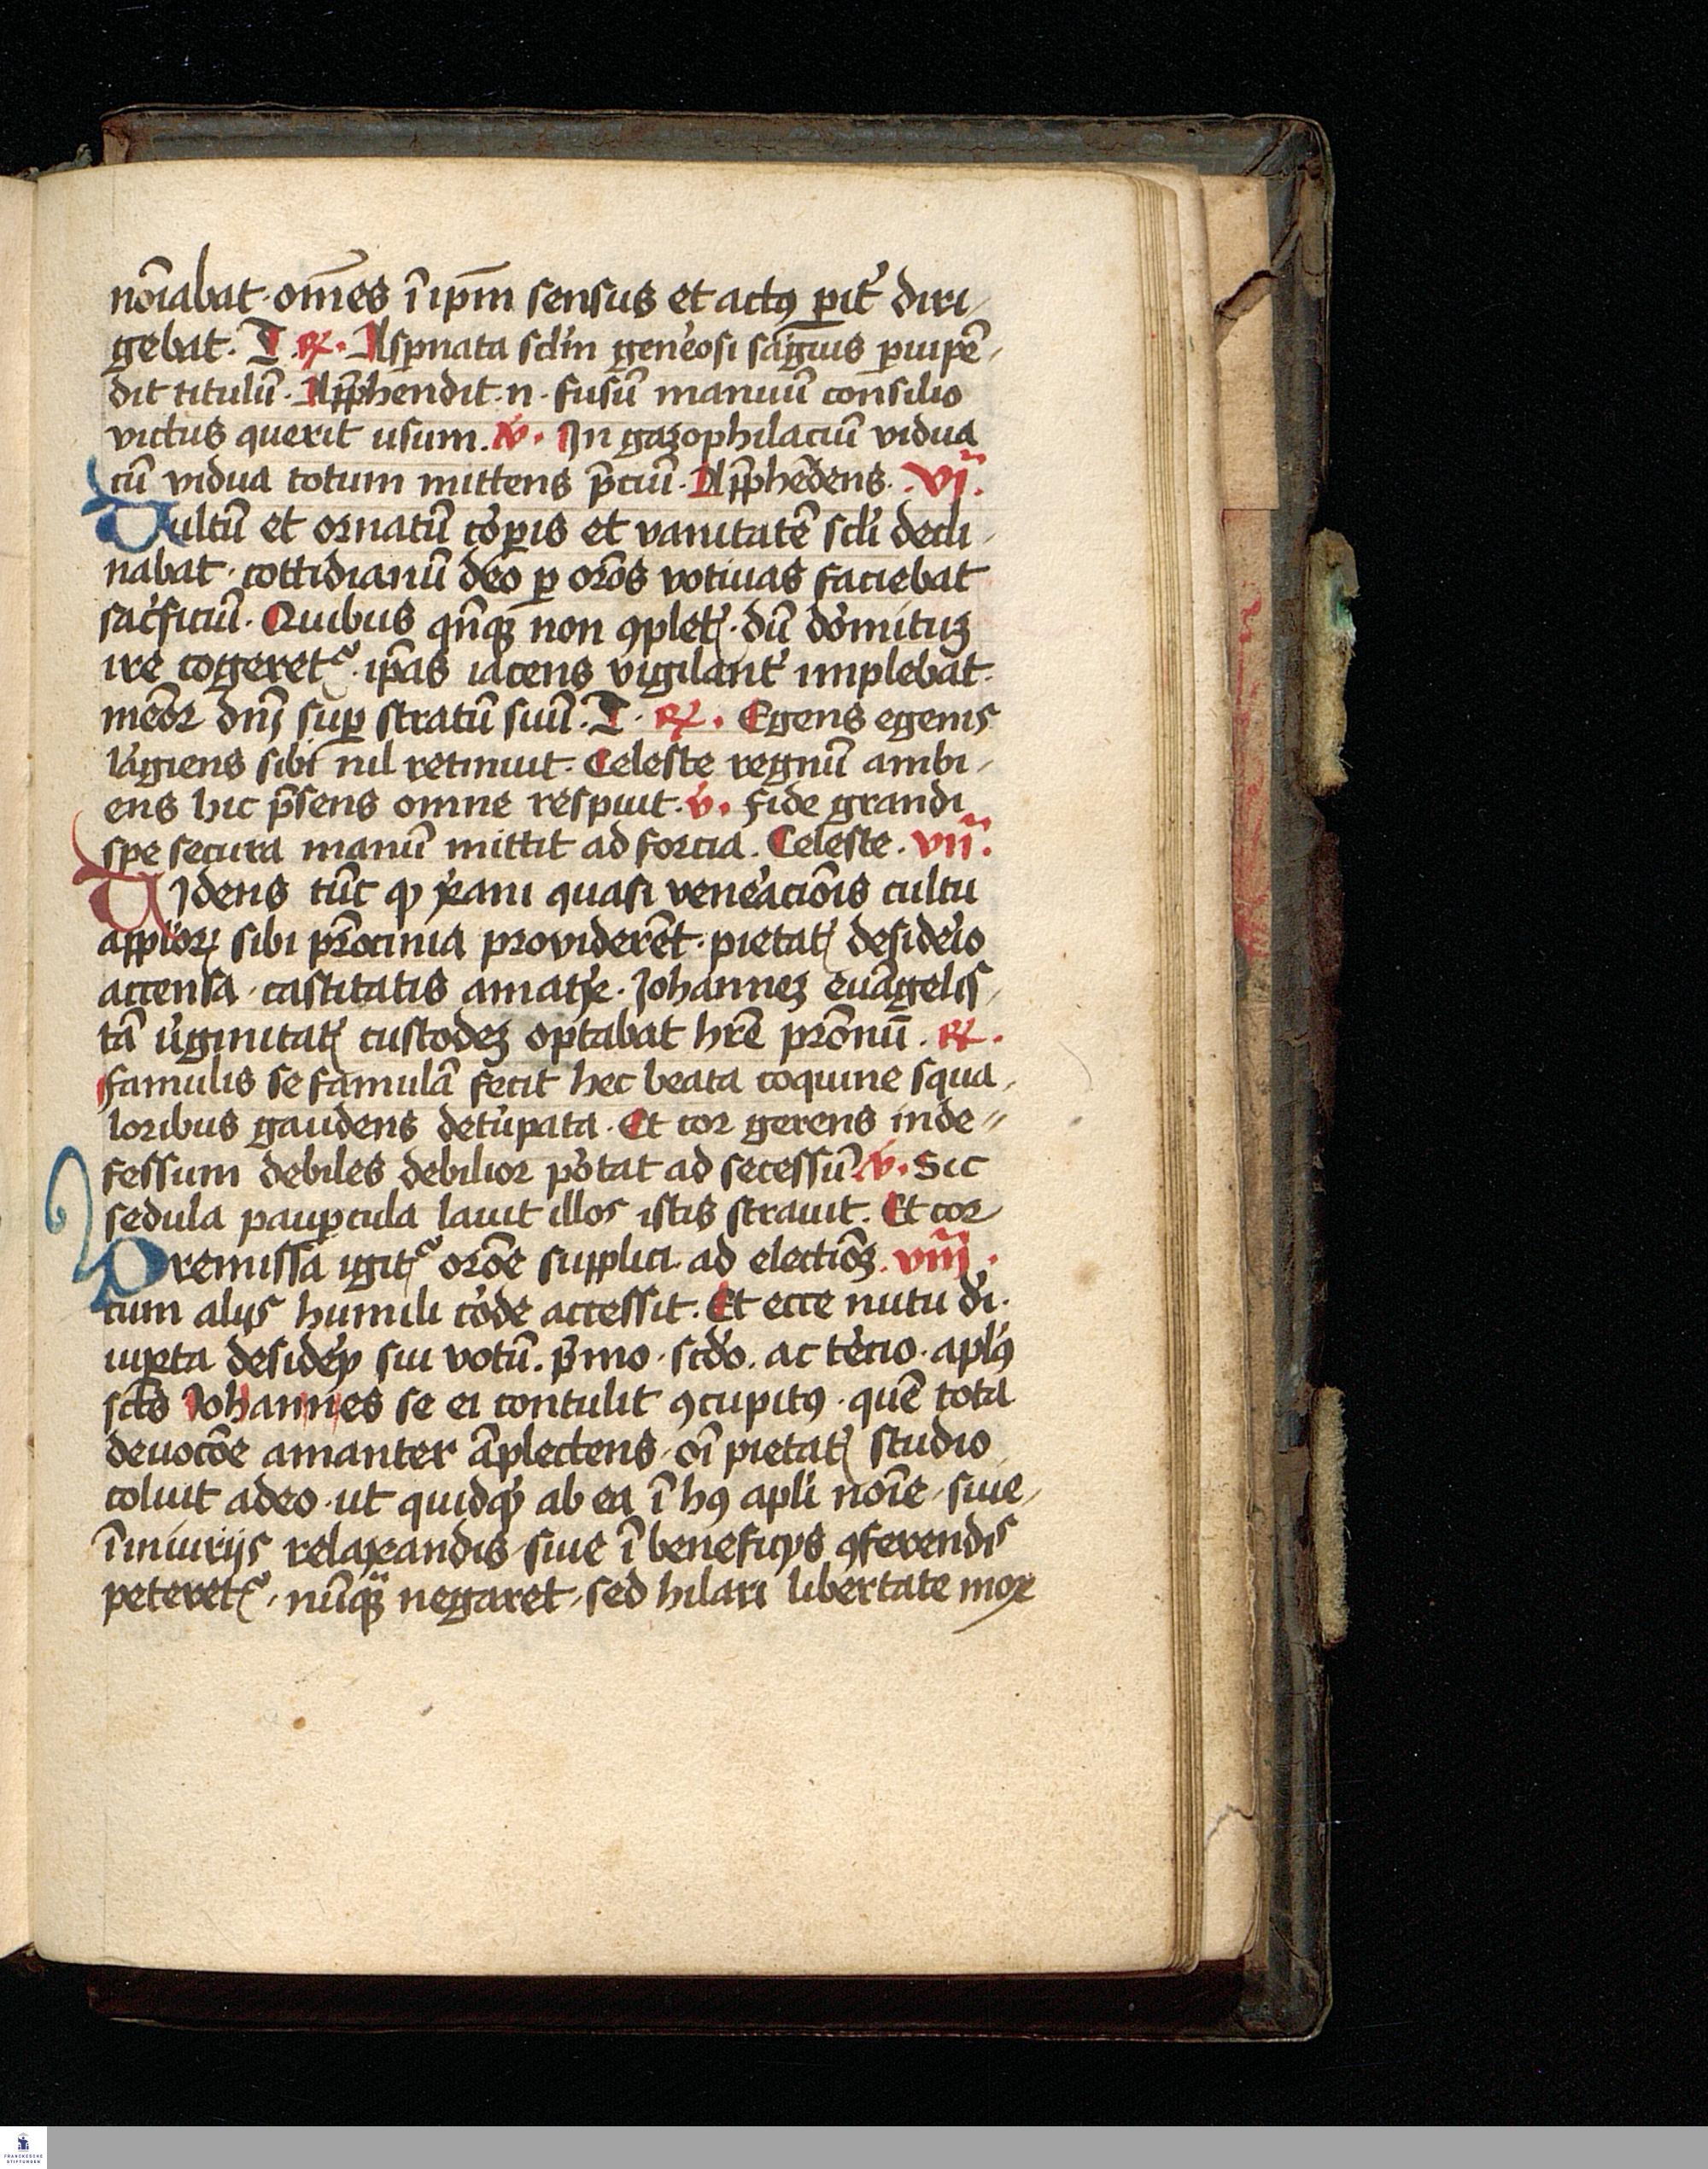 noı̄abat · om̄es ī ip̄m sensus et actꝯ ꝑit᷑ diri⸗
gebat. T. ℟. Aspnata scl̄m gen᷑osi sāguis ꝑuipē⸗
dit titulū. App̄hendit .n. fusū manuū consilio
victus querit usum. ℣. In gazophilaciū vidua
cū vidua totum mittens p̄ciū. App̄hēdens. vi.
Vultū et ornatū cor᷑ꝑis et vanitatē scl̄i decli⸗
nabat · cottidianū deo ꝑ orōs votivas faciebat
sac᷑ficiū. Quibus qn̄qꝫ non ꝯpletꝭ. dū dormitūꝫ
ire cogeret᷑ · ip̄as iacens vigilant᷑ implebat
mēor dn̄j suꝑ stratū suū. T. ℟. Egens egenis
largiens sibi nil retinuit. Celeste regnū ambi⸗
ens hic p̄sens omne respuit. ℣. Fide grandi
spe secura manū mittit ad forcia. Celeste. vii.
Uidens tūc ꝙ xp̄ani quasi ven᷑aciōis cultu
app̄lorꝝ sibi pr̄ocinia providerēt · pietatꝭ desid᷑io
accensa · castitatis amat᷑x. Johannеꝫ evāgelis⸗
tā v᷑ginitatꝭ custodeꝫ optabat hr̄e pr̄onū. ℟.
Famulis se famulā fecit hec beata coquine squa⸗
loribus gaudens det᷑upata. Et cor gerens inde⸗
fessum debiles debilior po᷑tat ad secessū. ℣. Sic
sedula pauꝑcula lavit illos istis stravit. Et cor
Premissa igit᷑ orōe supplici ad electiōꝫ. viii.
cum alijs humili co᷑de accessit. Et ecce nutu di᷑.
iuxta desid᷑ꝝ sui votū. p᷑mo · scd᷑o. ac t᷑cio · apl̄ꝯ
sct̄s Johannes se ei contulit ꝯcupitꝯ · quē tota
devocōe amanter āplectens · oī pietatꝭ studio
coluit adeo · ut quidqꝫ ab ea ī hꝯ apl̄i noı̄e · sive⸗
ī iniurijs relaxandis sive ī beneficijs ꝯferendis
peteret᷑ · nūqꝫ negaret · sed hilari libertate mox
FRANCKESCHE
STIFTUNGEN